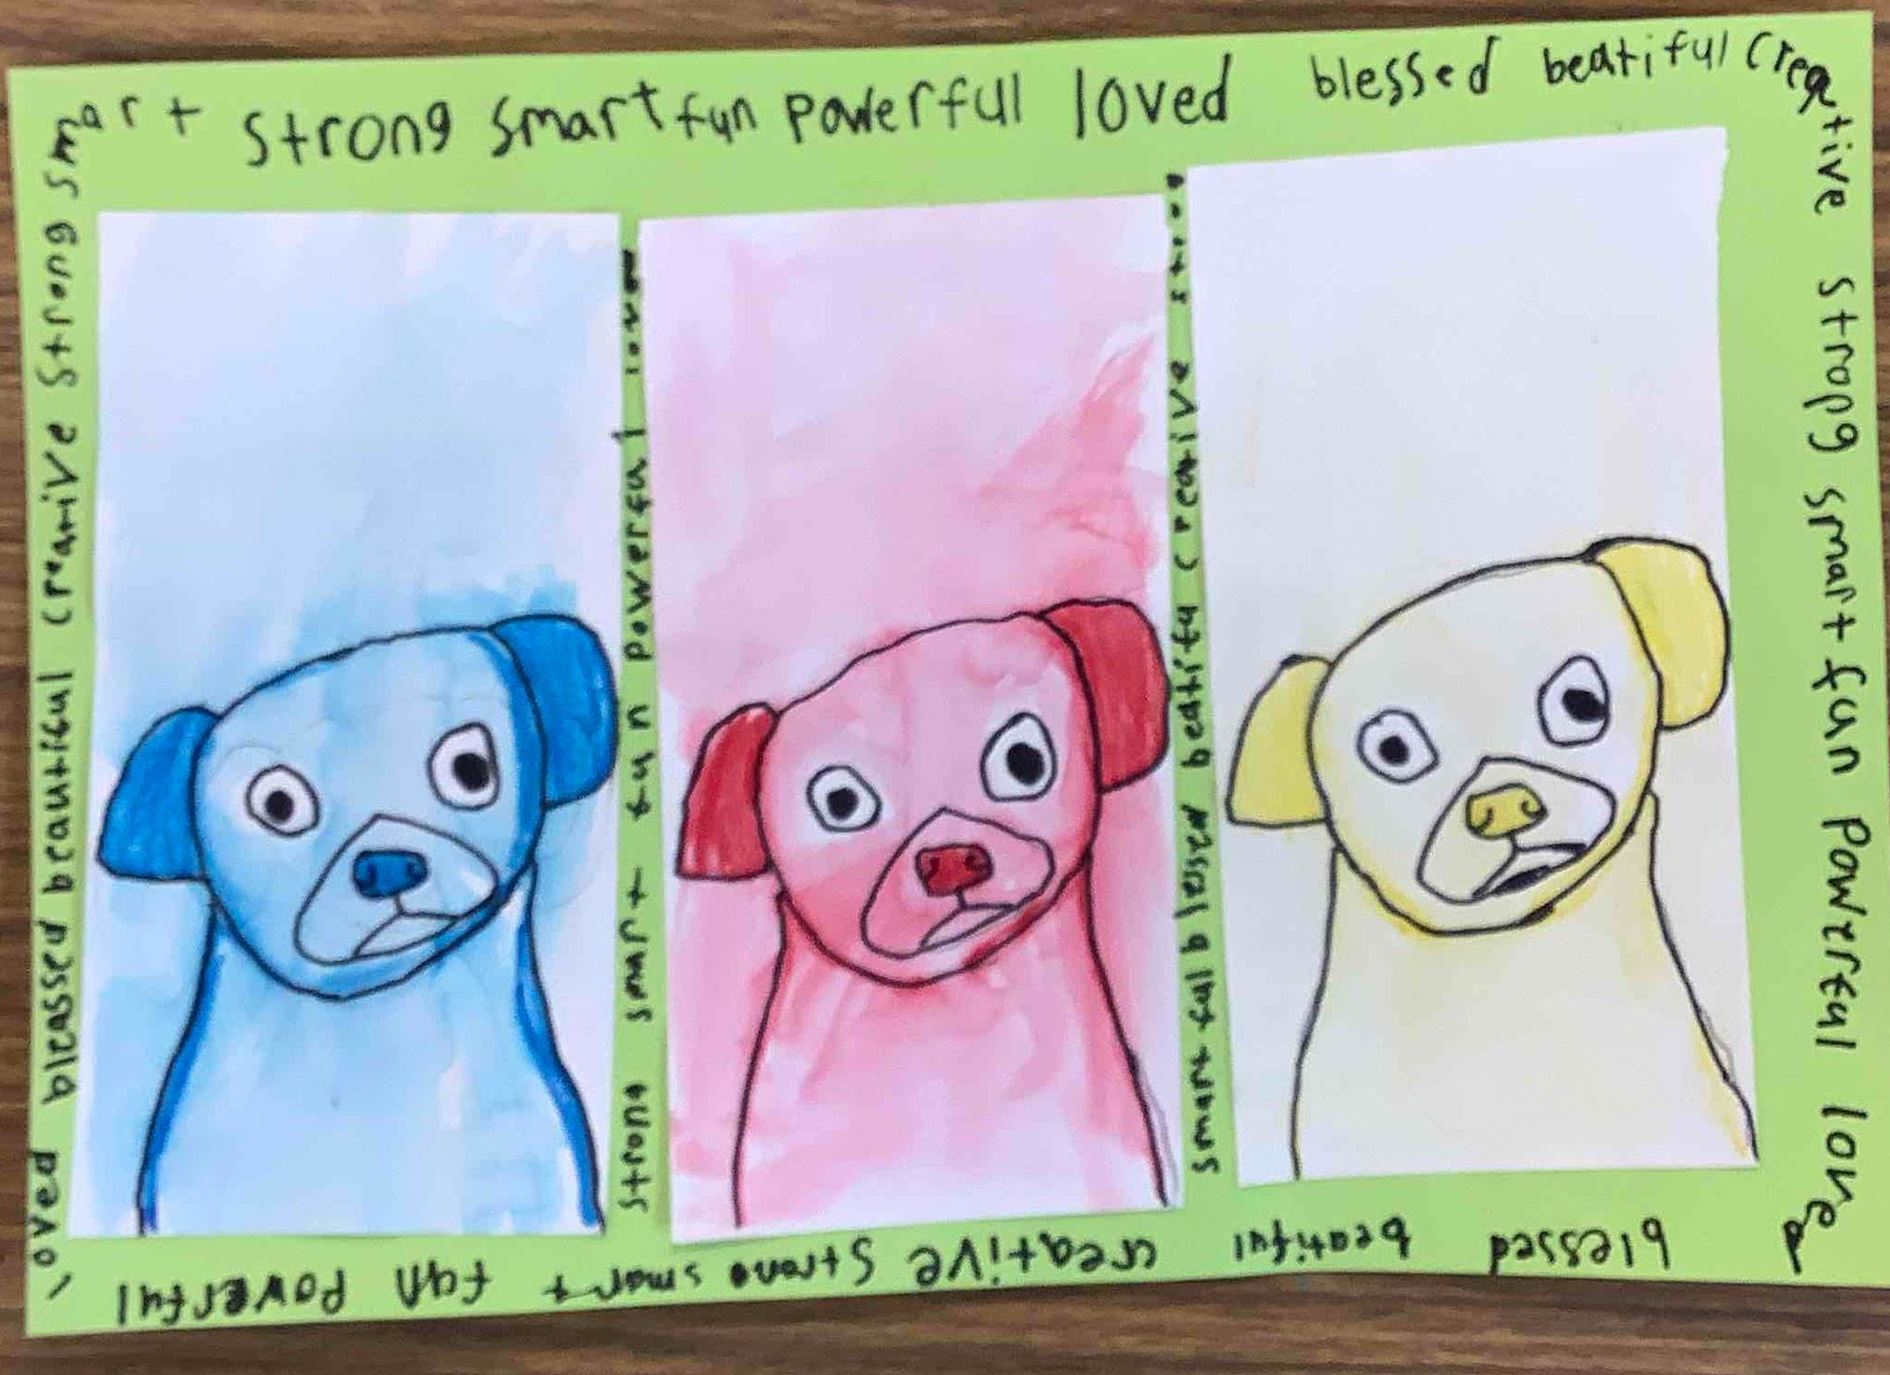 smart strong smart fun powerful loved blessed beatiful creative
strong smart fun powerful loved
blessed beatiful creative strong smart fun powerful
loved bleassed beautiful creative strong
strong smart fun powerful
smart ful blessed beatify creative